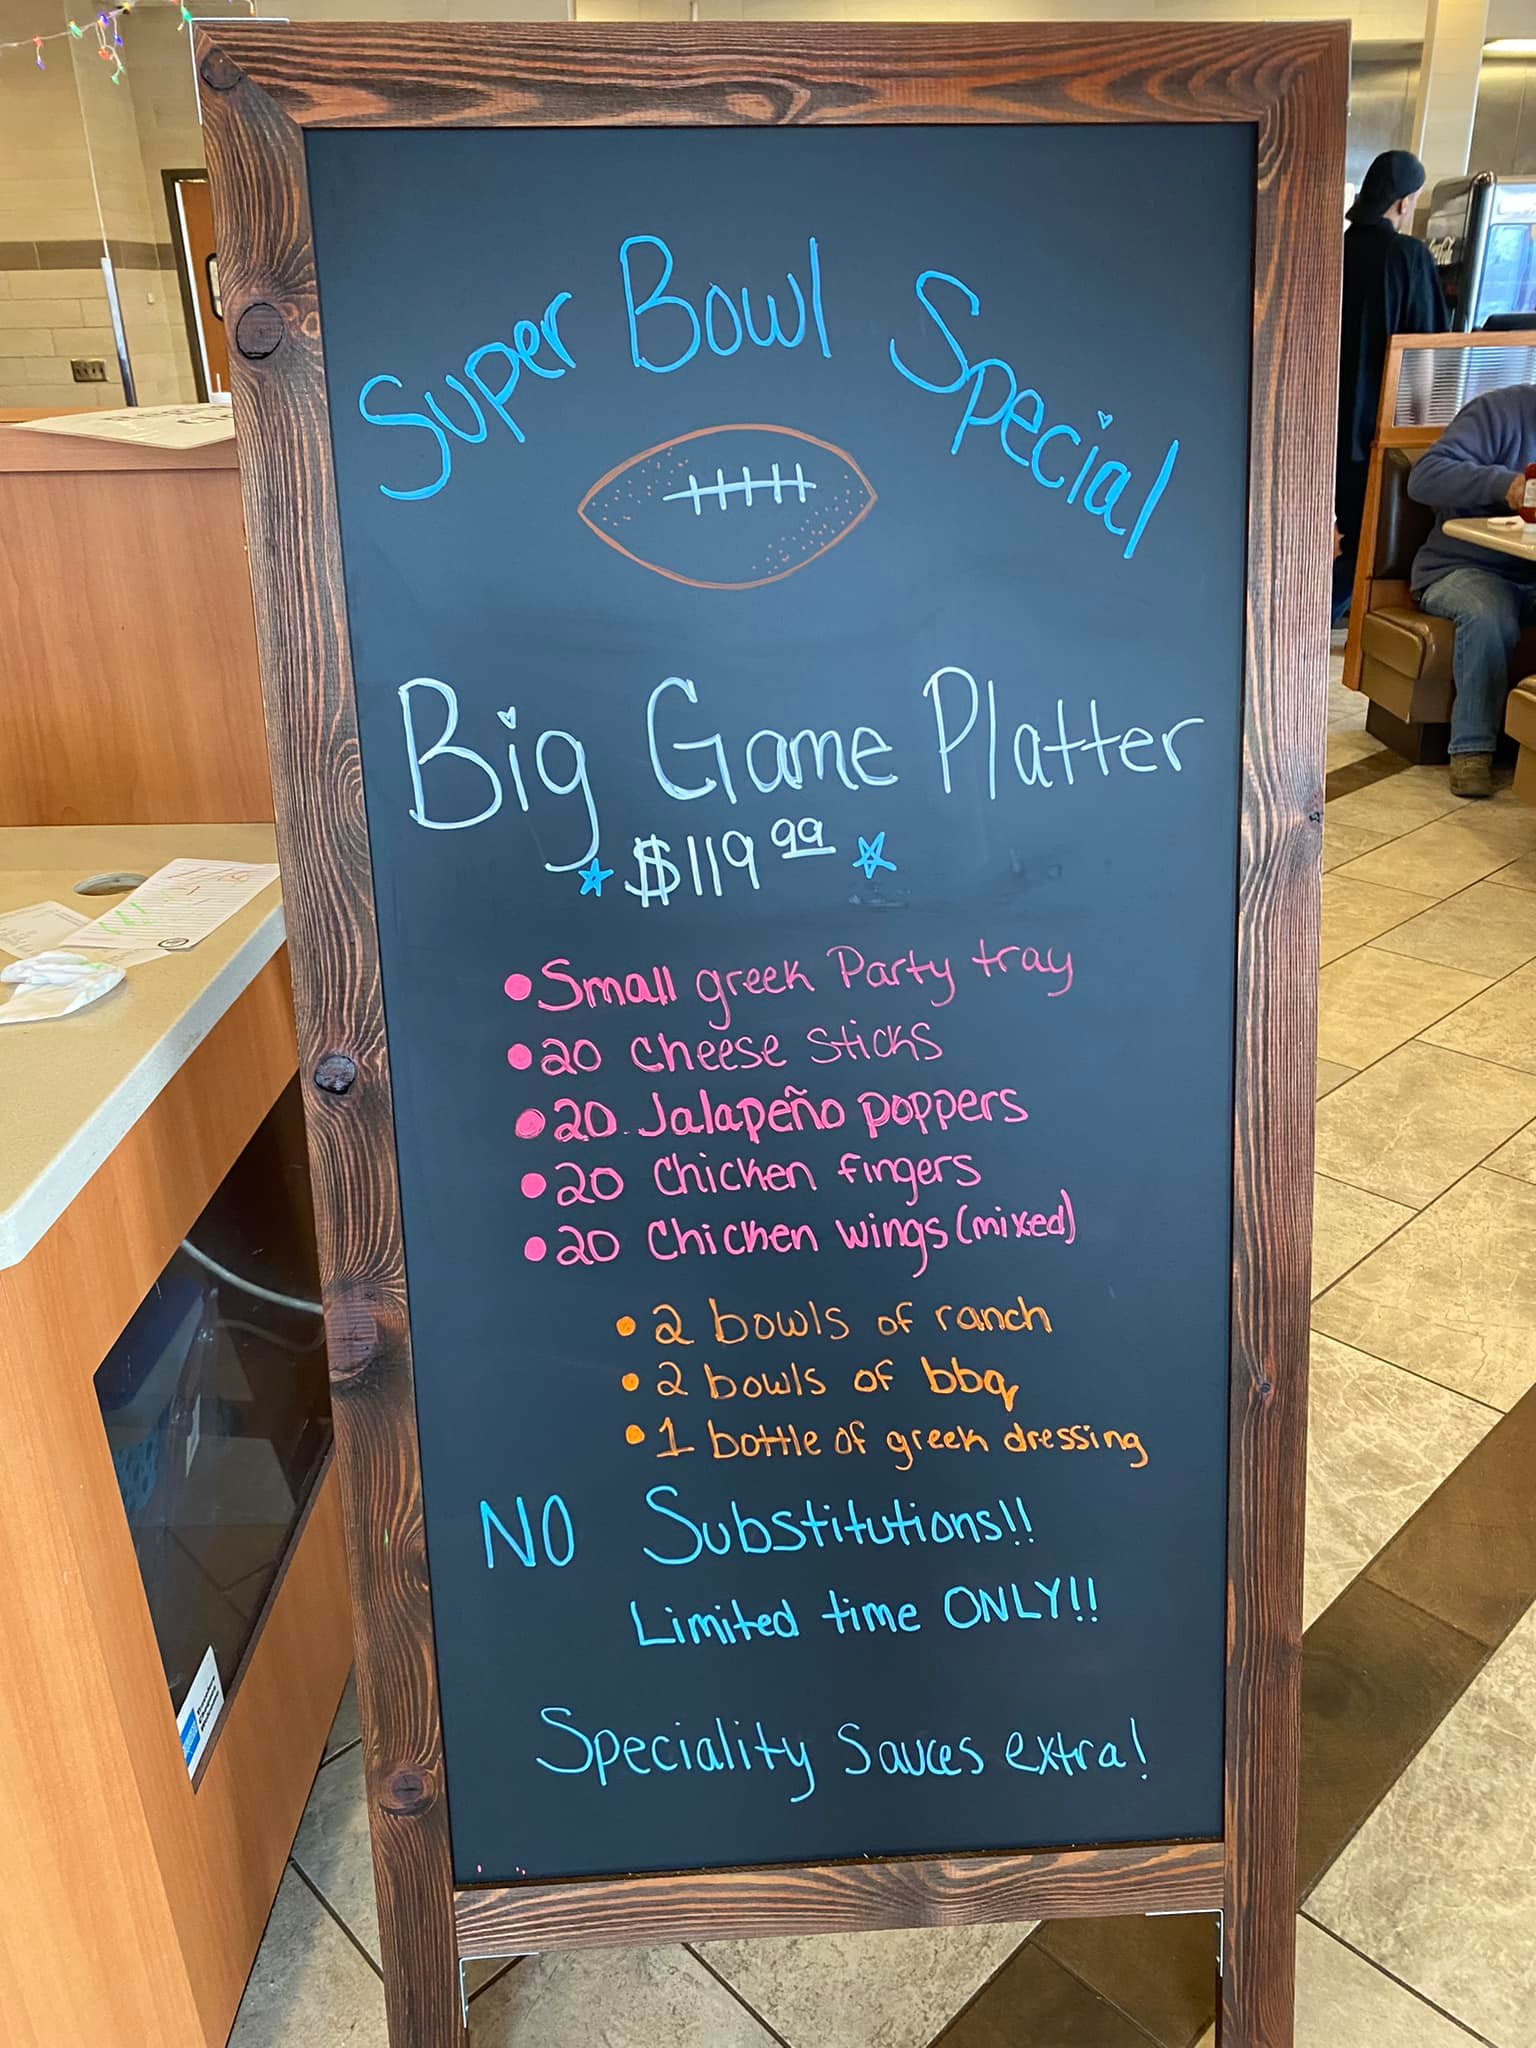 Super Bowl Special
Big Game Platter
$119.99
• Small greek Party tray
• 20 cheese sticks
• 20 Jalapeño poppers
• 20 Chicken fingers
• 20 Chicken wings (mixed)
• 2 bowls of ranch
• 2 bowls of bbq
• 1 bottle of greek dressing
NO Substitutions!!
Limited time ONLY!!
Speciality Sauces extra!